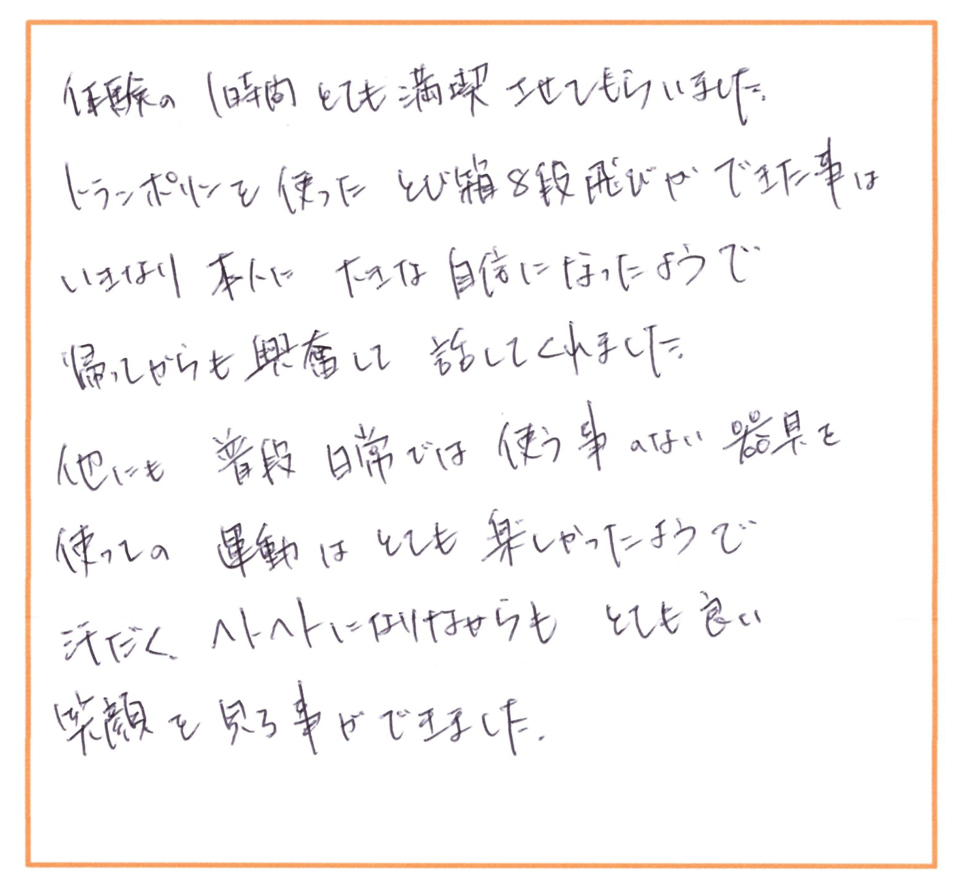 体験の1時間とても満喫させてもらいました。
トランポリンを使ったとび箱8段飛びができた事は
いきなり本人に大きな自信になったようで
帰ってからも興奮して話してくれました。
他にも普段日常では使う事のない器具を
使っての運動はとても楽しかったようで
汗だく、ヘトヘトになりながらもとても良い
笑顔を見る事ができました。